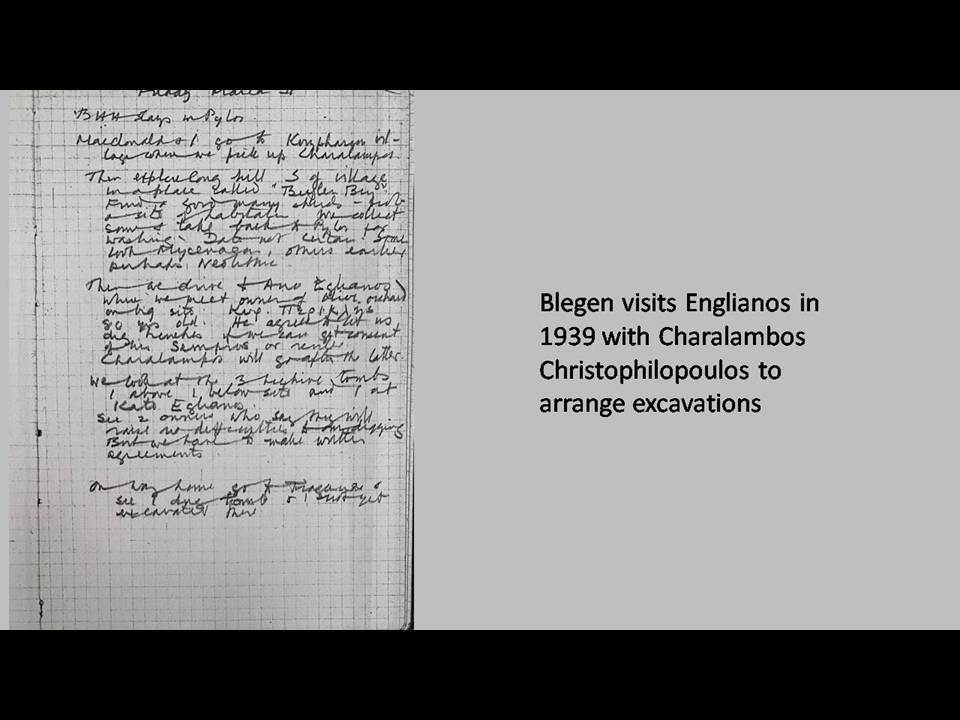 Friday March 31
BHH stays in Pylos
Macdonald & I go to Koryphasion vil-
lage where we pick up Charalampos
Then explore long hill S of village
in a place called "Beyler Bey".
Find a good many sherds –
a site of habitation. We collect
some & take back to Pylos for
washing. Date not certain. Some
look Mycenaean, others earlier
perhaps Neolithic
Then we drive to Ano Eglianos
where we meet owner of olive orchard
on big site.
80 yrs old. He agrees to let us
dig trenches if we can get consent
of his or renter
Charalampos will go after the latter.
We look at the 3 beehive tombs
1 above 1 below site and 1 at
Kato Eglianos.
See 2 owners who say they will
raise no difficulties to our digging
But we have to make written
agreements
On way home go to Tragana &
see 1 dug tomb & 1 not yet
excavated there
Blegen visits Englianos in
1939 with Charalambos
Christophilopoulos to
arrange excavations